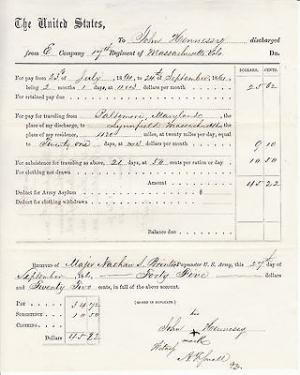 The United States,
To John Hennessy discharged
from E Company 17th Regiment of Massachusetts Vols Dr.
DOLLARS. CENTS.
For pay from 23d of July 1861, to 24th September, 1861,
being 2 months 1 days, at dollars per month
For retained pay due
For pay for traveling from Baltimore, Maryland
the place of discharge, to Lynnfield Massachusetts
place of residence, miles, at twenty miles per day, equal
to Twenty one days, at dollars per month 9 10
For subsistence for traveling as above, 21 days, at 50 cents per ration or day 10 50
For clothing not drawn
Amount 45 22
Deduct for Army Asylum
Deduct for clothing overdrawn
Balance due
RECEIVED of Major Nathan S. Brinton Paymaster U. S. Army, this 27th day
of September, 1861, Forty Five dollars
and Twenty Two cents, in full of the above account.
(SIGNED IN DUPLICATE.)
PAY 34 72
SUBSISTENCE 10 50
CLOTHING,
Dollars 45 22
his
John Hennessy
mark
Witness